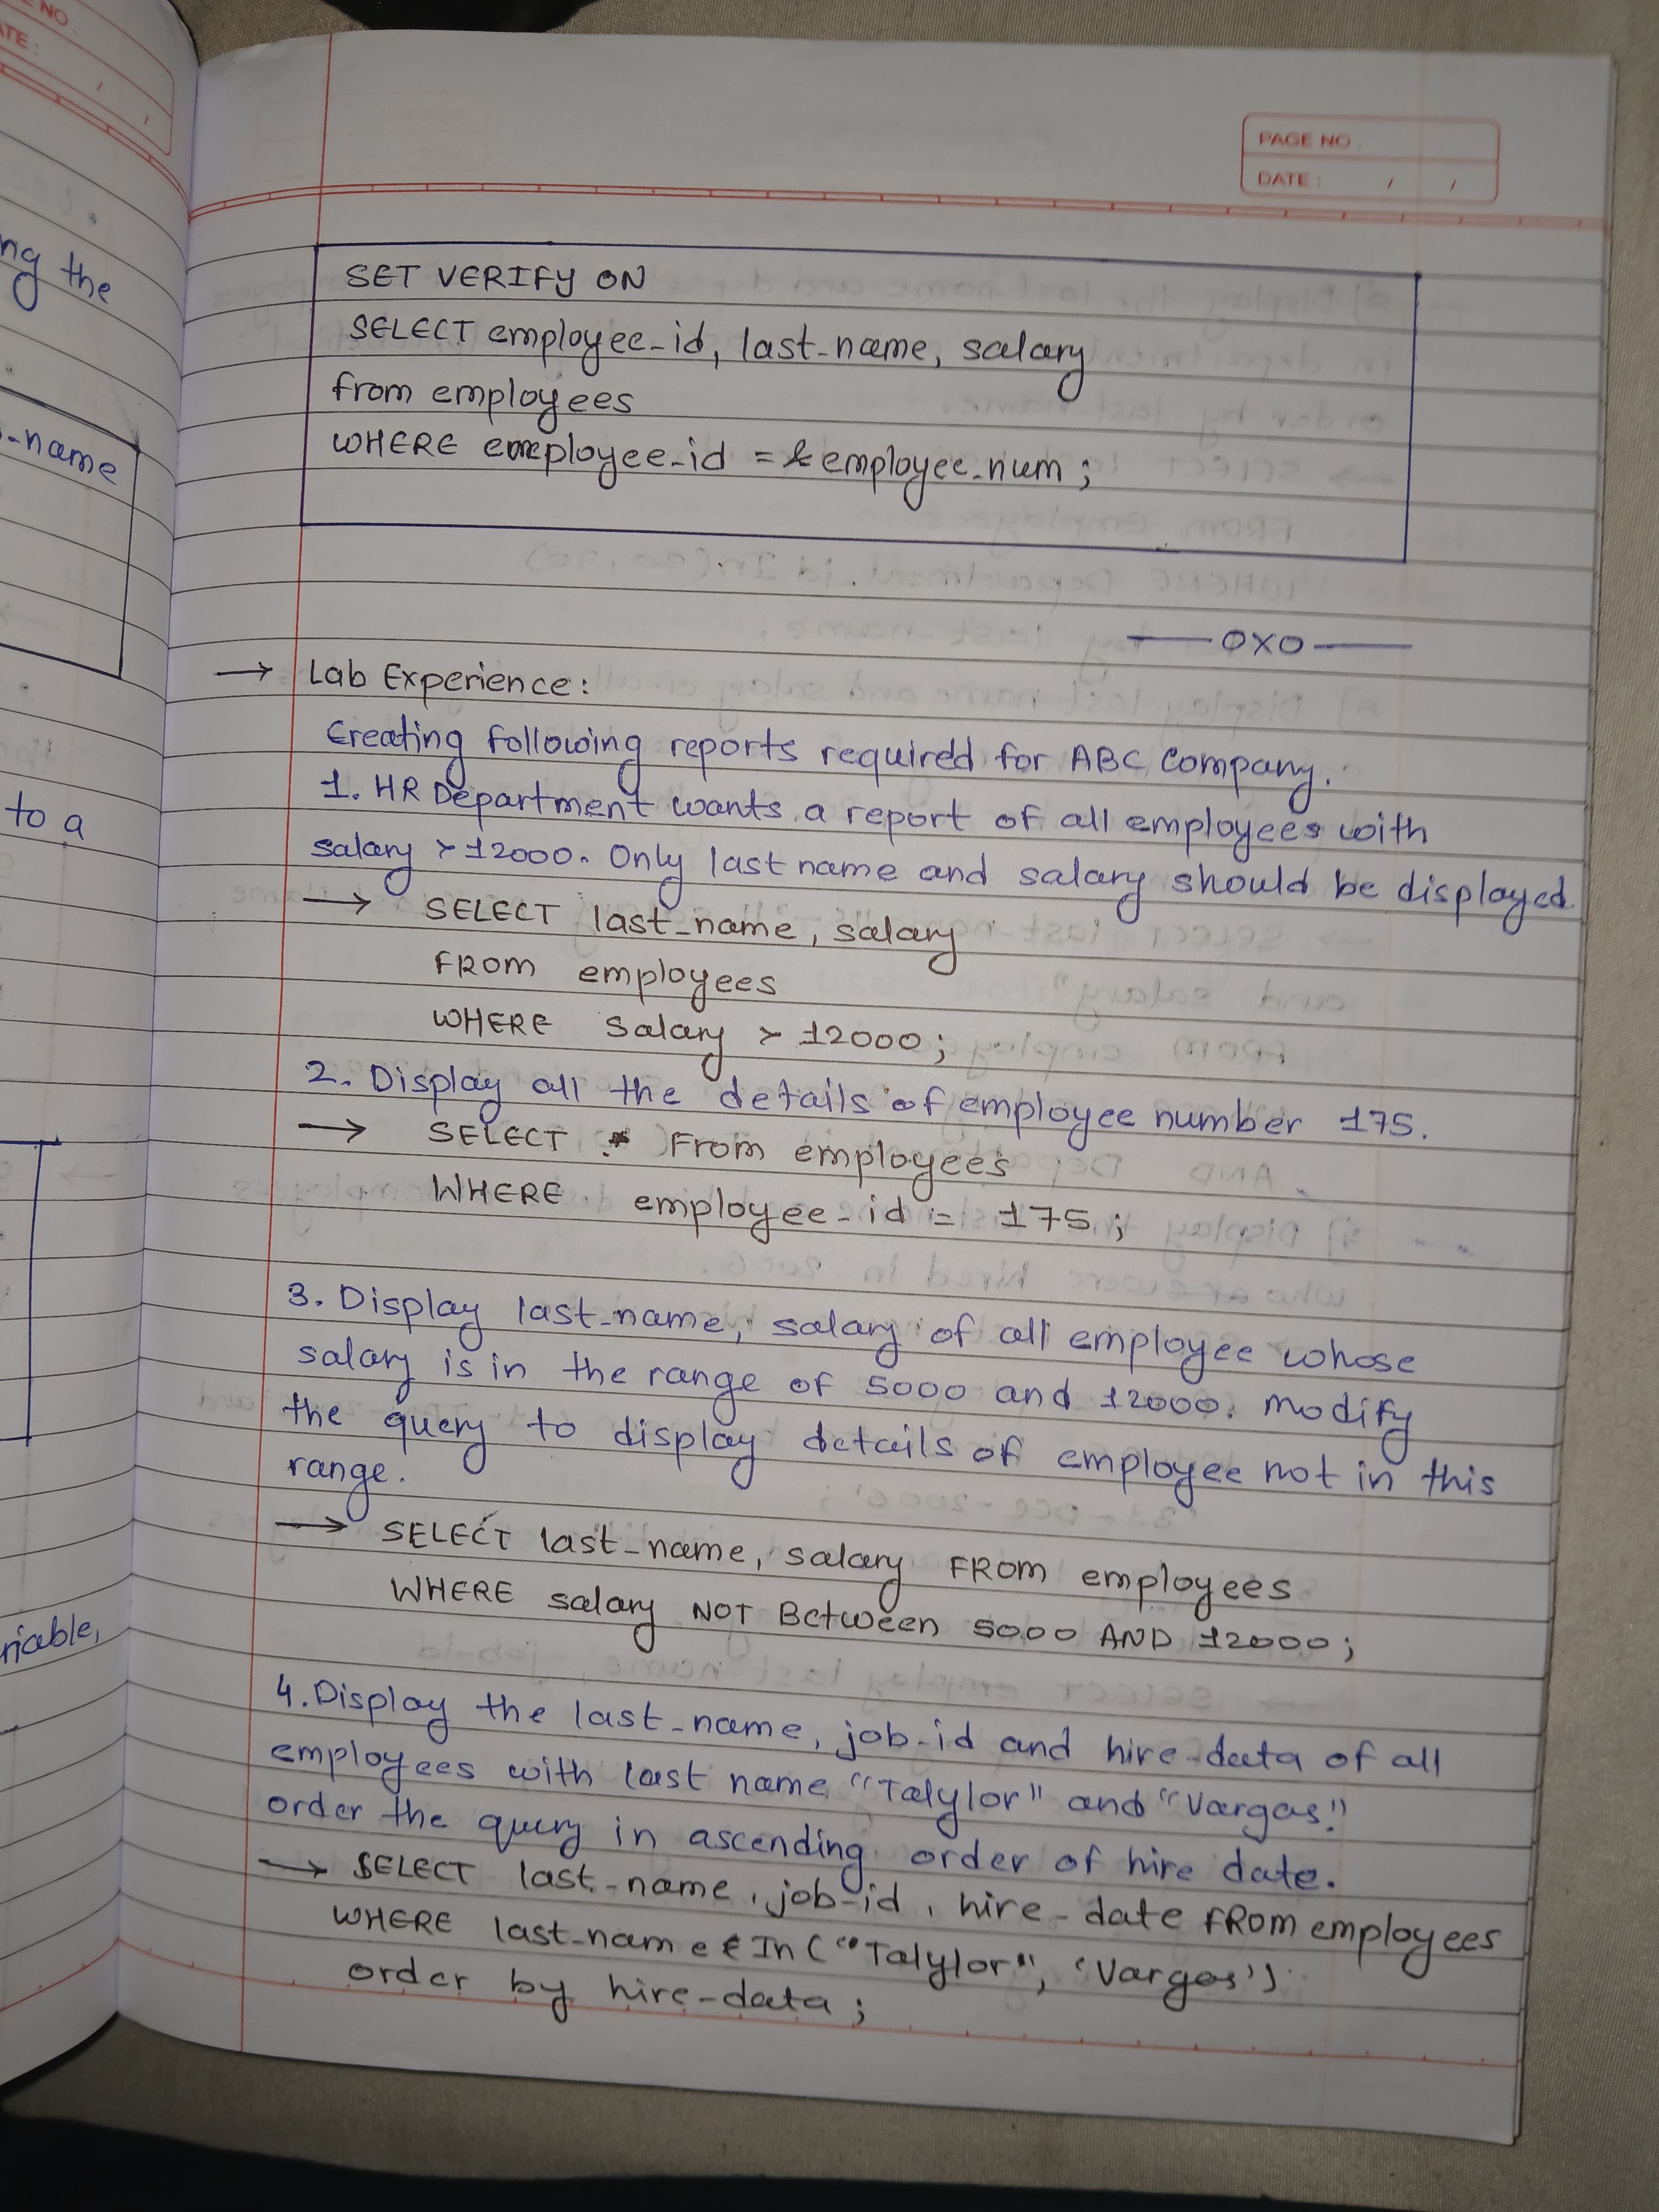 E NO.
ATE: / /
ng the
-name
to a
riable,
PAGE NO.
DATE: / /
SET VERIFY ON
SELECT employee-id, last-name, salary
from employees
WHERE employee-id = & employee-num;
—— OXO ——
→ Lab Experience:
Creating following reports required for ABC Company.
1. HR Department wants a report of all employees with
salary > 12000. Only last name and salary should be displayed.
→ SELECT last-name, salary
FROM employees
WHERE Salary > 12000;
2. Display all the details of employee number 175.
→ SELECT * From employees
WHERE employee-id = 175;
3. Display last-name, salary of all employee whose
salary is in the range of 5000 and 12000. Modify
the query to display details of employee not in this
range.
→ SELECT last-name, salary FROM employees
WHERE salary NOT Between 5000 AND 12000;
4. Display the last-name, job-id and hire-data of all
employees with last name "Talylor" and "Vargas".
order the query in ascending order of hire date.
→ SELECT last-name, job-id, hire-date FROM employees
WHERE last-name In ("Talylor", 'Vargas')
order by hire-data;